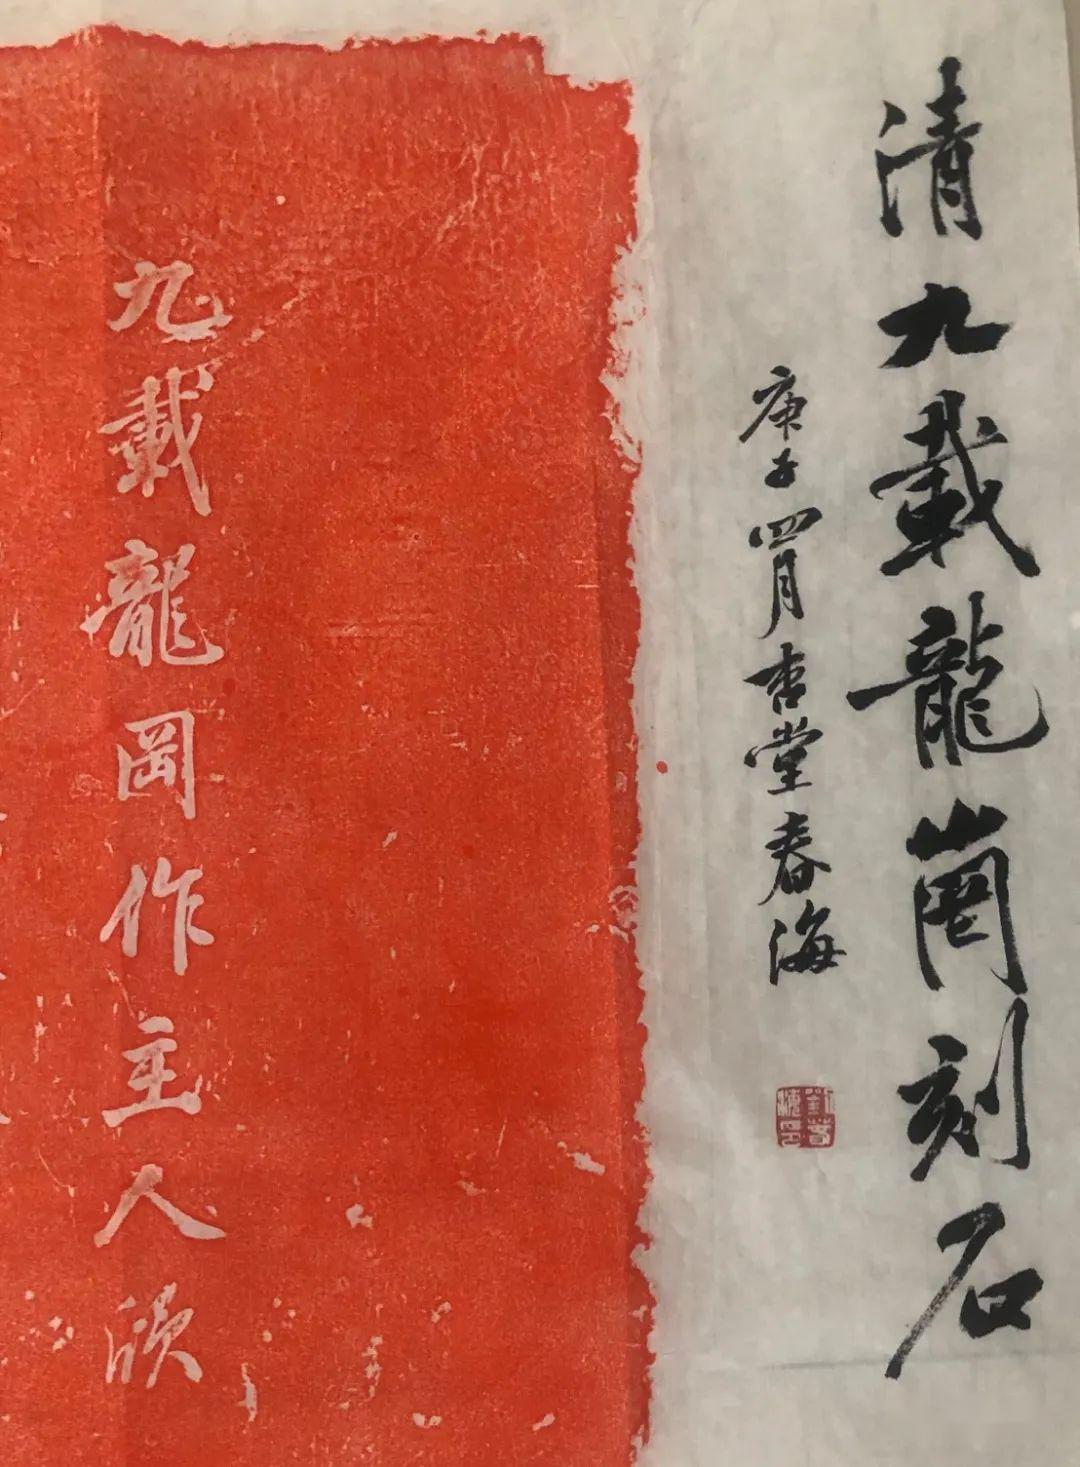 清九載龍崗刻石
庚子四月杏堂春海
九載龍岡作主人欣